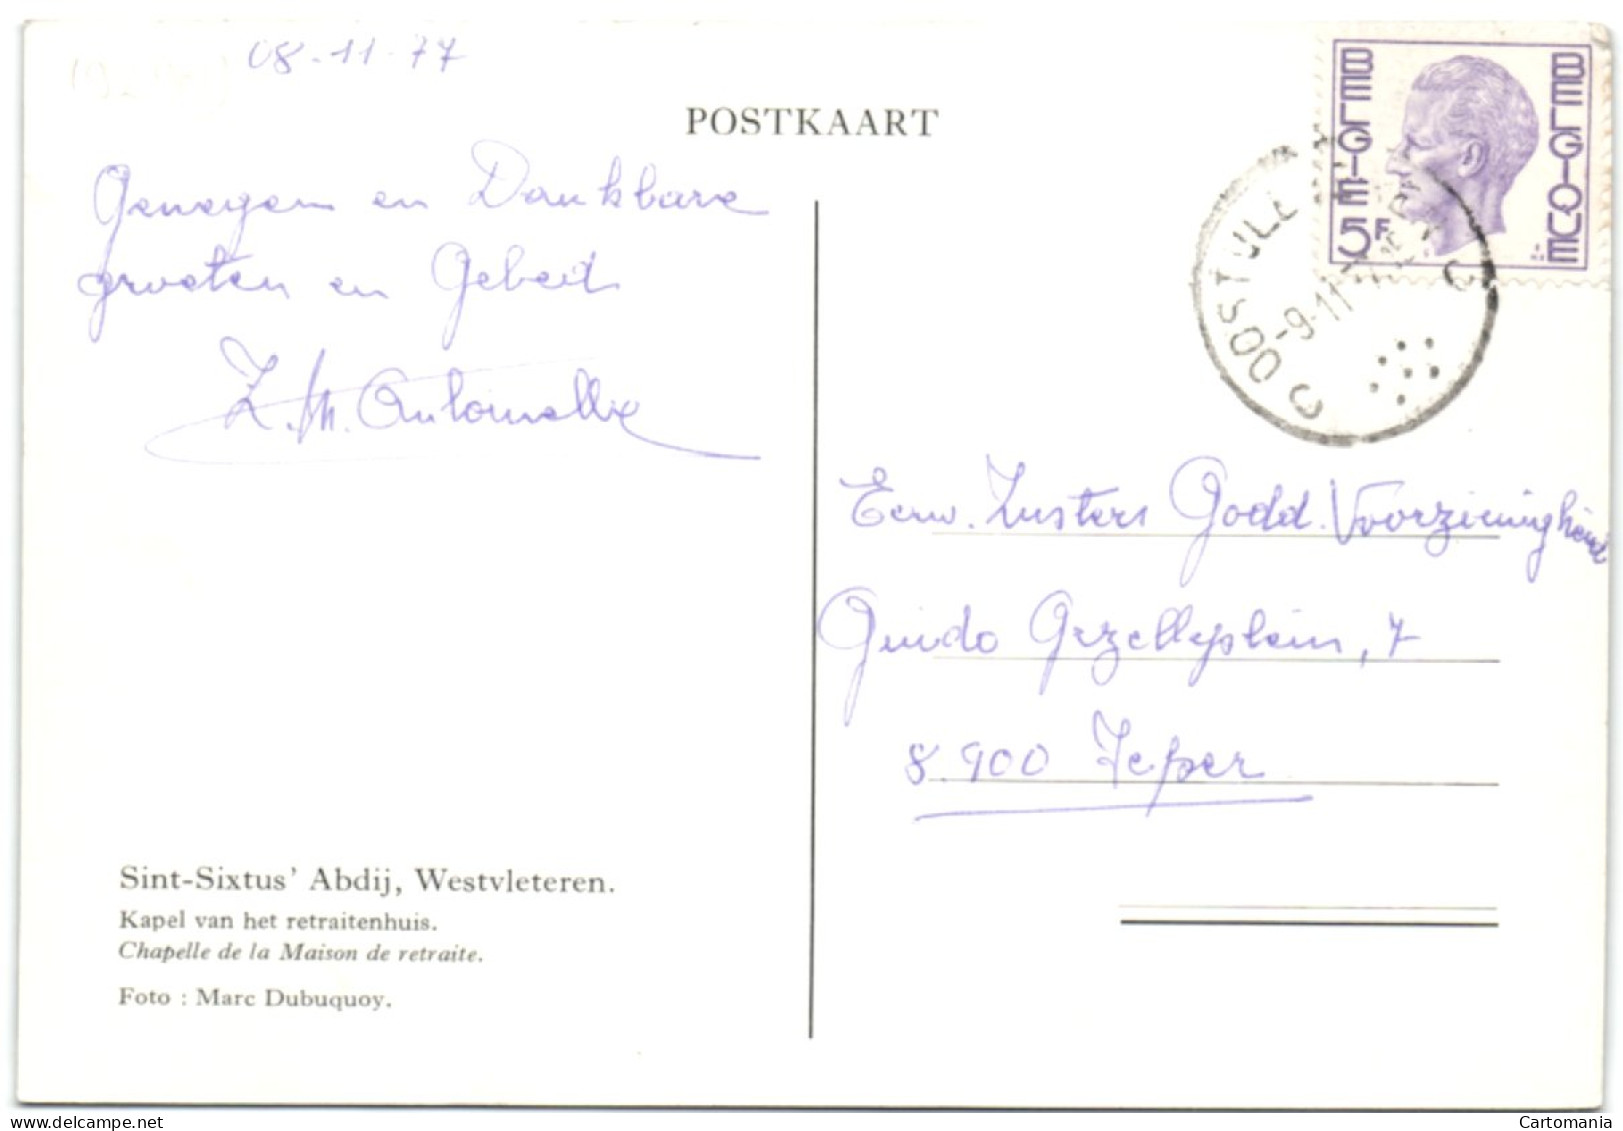 08-11-77
POSTKAART
Genegen en Dankbare
groeten en Gebed
Z. M. Antoinette
BELGIE 5F
BELGIQUE
-9-11
C
C
Eerw. Zusters Godd. Voorzienigheid
Guido Gezelleplein, 7
8.900 Ieper
Sint-Sixtus' Abdij, Westvleteren.
Kapel van het retraitenhuis.
Chapelle de la Maison de retraite.
Foto : Marc Dubuquoy.
Cartomania